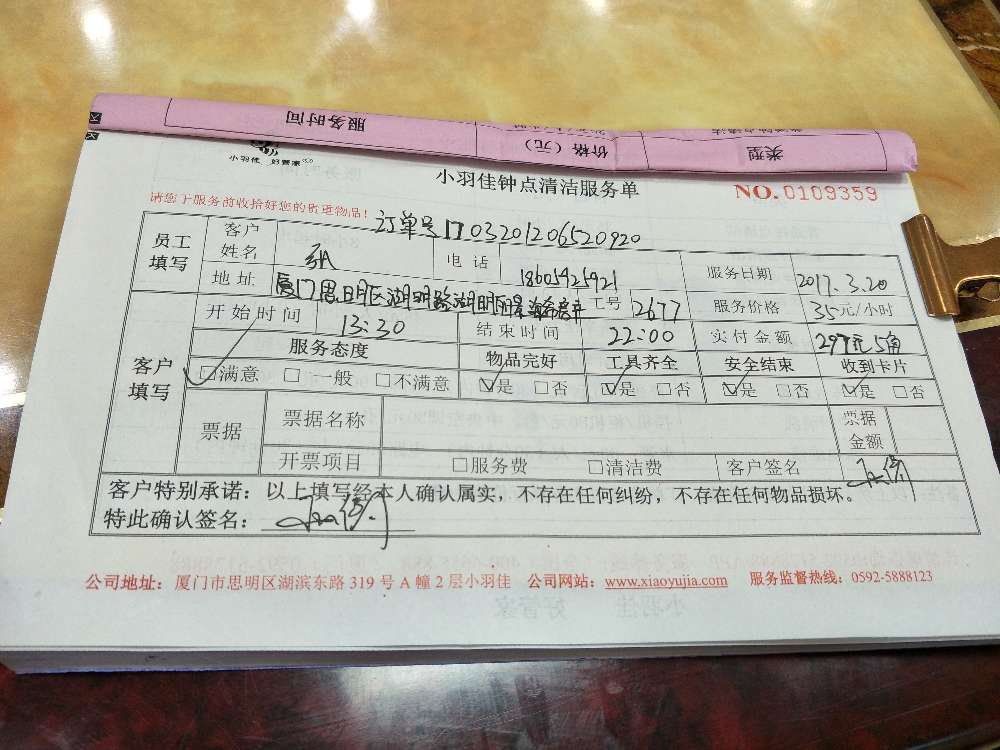 服务时间
价格（元）
类型
小羽佳 好管家
小羽佳钟点清洁服务单
NO.0109359
请您于服务前收拾好您的贵重物品！
订单号1703201206520920
员工填写 客户姓名 电话 18605925921 服务日期 2017.3.20
地址 厦门思明区湖明路湖明 工号 2677 服务价格 35元/小时
开始时间 13:30 结束时间 22:00 实付金额 297元5角
客户填写 服务态度 物品完好 工具齐全 安全结束 收到卡片
☑满意 □一般 □不满意 ☑是 □否 ☑是 □否 ☑是 □否 ☑是 □否
票据 票据名称 票据金额
开票项目 □服务费 □清洁费 客户签名
客户特别承诺：以上填写经本人确认属实，不存在任何纠纷，不存在任何物品损坏。
特此确认签名：
公司地址：厦门市思明区湖滨东路 319 号 A 幢 2 层小羽佳 公司网站：www.xiaoyujia.com 服务监督热线：0592-5888123